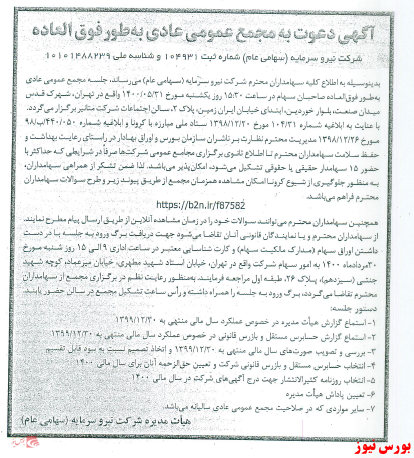 آگهی دعوت به مجمع عمومی عادی به‌طور فوق العاده
شرکت نیرو سرمایه (سهامی عام) شماره ثبت ۱۰۴۹۳۱ و شناسه ملی ۱۰۱۰۱۴۸۸۲۳۹
بدینوسیله به اطلاع کلیه سهامداران محترم شرکت نیرو سرمایه (سهامی عام) می‌رساند، جلسه مجمع عمومی عادی
به‌طور فوق‌العاده صاحبان سهام در ساعت ۱۵:۳۰ روز یکشنبه مورخ ۱۴۰۰/۰۵/۳۱ واقع در تهران، شهرک قدس
میدان صنعت، بلوار خوردین، ابتدای خیابان ایران زمین، پلاک ۲، سالن اجتماعات شرکت متانیر برگزار می‌گردد.
با عنایت به ابلاغیه شماره ۱۰۴/۳۱ مورخ ۱۳۹۸/۱۲/۲۰ ستاد ملی مبارزه با کرونا و ابلاغیه شماره ۴۴۰/۰۵۰/ب/۹۸
مورخ ۱۳۹۸/۱۲/۲۶ مدیریت محترم نظارت بر ناشران سازمان بورس و اوراق بهادار در راستای رعایت بهداشت و
حفظ سلامت سهامداران محترم تا اطلاع ثانوی برگزاری مجامع عمومی شرکت‌ها صرفاً در شرایطی که حداکثر با
حضور ۱۵ سهامدار حقیقی یا حقوقی تشکیل می‌شود، امکان‌پذیر می‌باشد. لذا ضمن تشکر از همراهی سهامداران،
به منظور جلوگیری از شیوع کرونا امکان مشاهده همزمان مجمع از طریق پیوند زیر و طرح سوالات سهامداران
محترم فراهم می‌باشد.
https://b2n.ir/f87582
همچنین سهامداران محترم می‌توانند سوالات خود را در زمان مشاهده آنلاین از طریق ارسال پیام مطرح نمایند.
از سهامداران محترم و یا نمایندگان قانونی آنان تقاضا می‌شود جهت دریافت برگ ورود به جلسه با در دست
داشتن اوراق سهام (مدارک مالکیت سهام) و کارت شناسایی معتبر در ساعت اداری ۹ الی ۱۵ روز شنبه مورخ
۳۰ مردادماه ۱۴۰۰ به امور سهام شرکت واقع در تهران، خیابان استاد شهید مطهری، خیابان میرعماد، کوچه شهید
جنتی (سیزدهم)، پلاک ۲۶، طبقه اول مراجعه فرمایند. به‌منظور رعایت نظم در برگزاری مجمع از سهامداران
محترم تقاضا می‌گردد، برگ ورود به جلسه را همراه داشته و رأس ساعت تشکیل مجمع در سالن حضور یابند.
دستور جلسه:
۱- استماع گزارش هیأت مدیره در خصوص عملکرد سال مالی منتهی به ۱۳۹۹/۱۲/۳۰
۲- استماع گزارش حسابرس مستقل و بازرس قانونی در خصوص عملکرد سال مالی منتهی به ۱۳۹۹/۱۲/۳۰
۳- بررسی و تصویب صورت‌های سال مالی منتهی به ۱۳۹۹/۱۲/۳۰ و اتخاذ تصمیم نسبت به سود قابل تقسیم
۴- انتخاب حسابرس مستقل و بازرس قانونی شرکت و تعیین حق‌الزحمه آنان برای سال مالی ۱۴۰۰
۵- انتخاب روزنامه کثیرالانتشار جهت درج آگهی‌های شرکت در سال مالی ۱۴۰۰
۶- تعیین پاداش هیأت مدیره
۷- سایر مواردی که در صلاحیت مجمع عمومی عادی سالیانه می‌باشد.
هیأت مدیره شرکت نیرو سرمایه (سهامی عام)
بورس نیوز